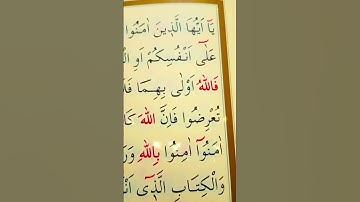 يَٓا اَيُّهَا الَّذ۪ينَ اٰمَنُوا
عَلٰٓى اَنْفُسِكُمْ اَوِ الْ
فَاللّٰهُ اَوْلٰى بِهِمَا فَلَا
تُعْرِضُوا فَاِنَّ اللّٰهَ كَا
اٰمَنُٓوا اٰمِنُوا بِاللّٰهِ وَرَ
وَالْكِتَابِ الَّذ۪ٓي اَنْ